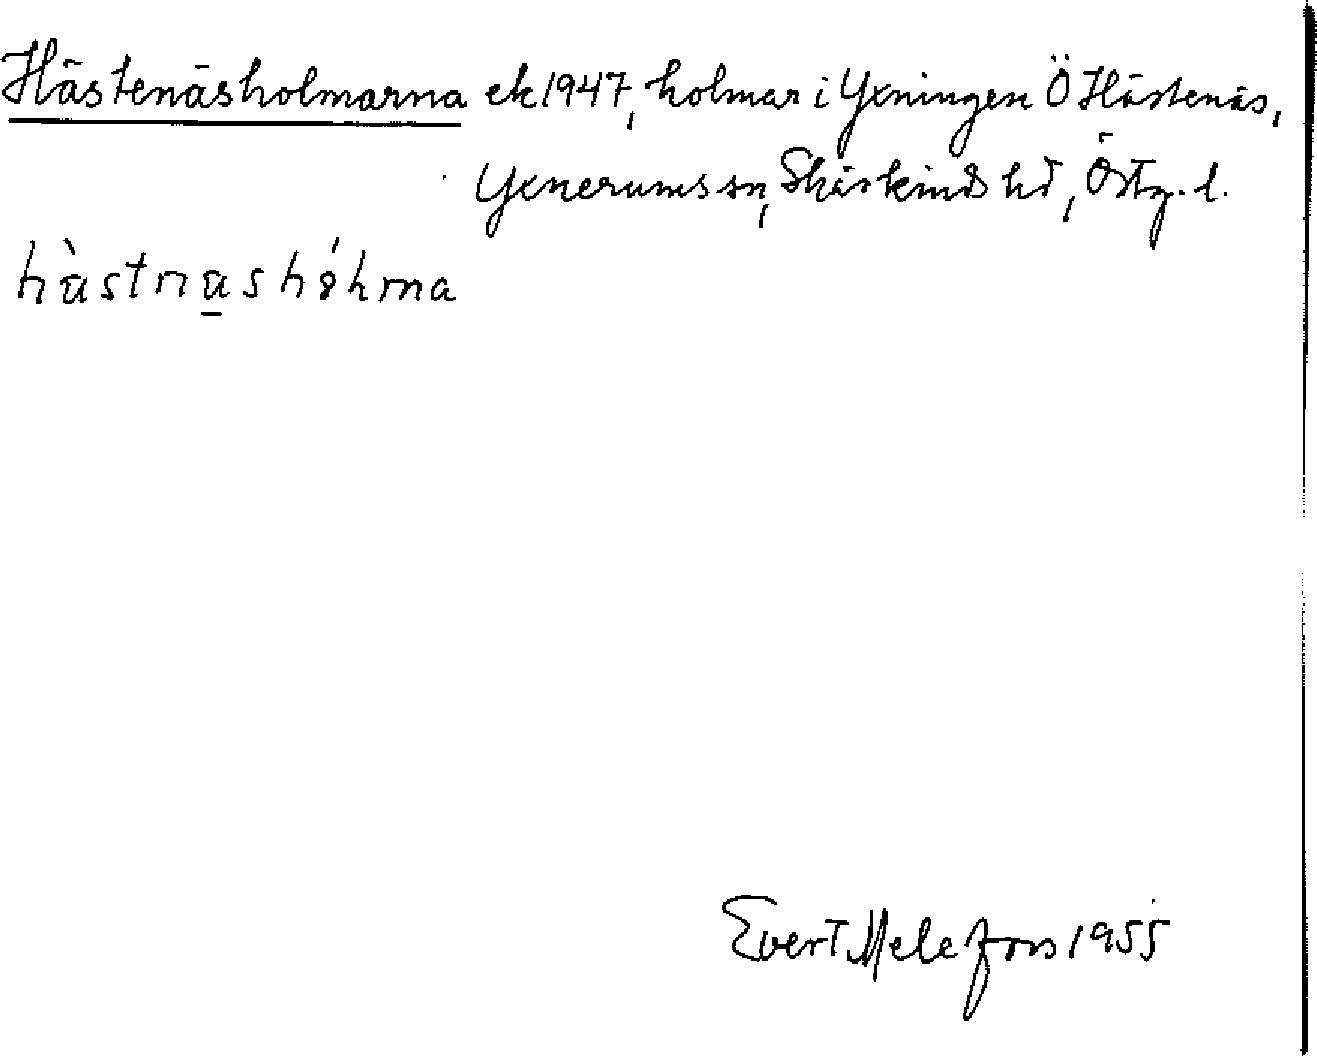 Hästenäsholmarna ek 1947, holmar i Yxningen Ö Hästenäs,
Yxnerums sn, Skärkinds hd, Östg. l.
hàstna̲shólma
Evert Melefors 1955